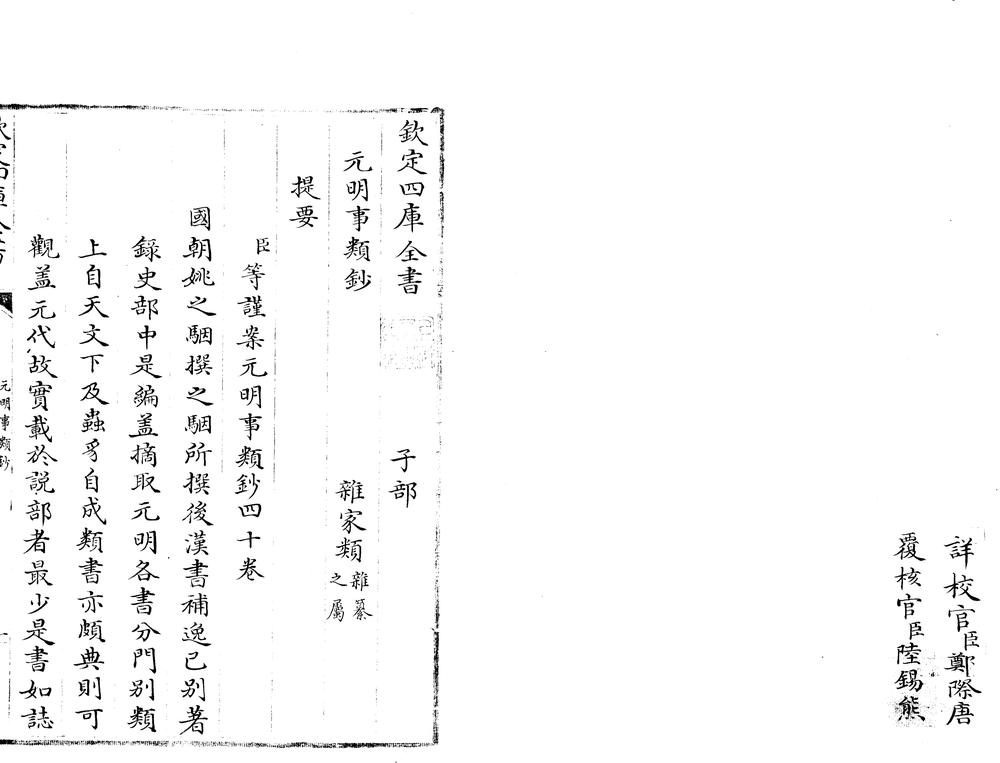 詳校官臣鄭際唐
覆核官臣陸錫熊
欽定四庫全書 子部
元明事類鈔 雜家類雜纂之屬
提要
臣等謹案元明事類鈔四十卷
國朝姚之駰撰之駰所撰後漢書補逸已别著
錄史部中是編盖摘取元明各書分門别類
上自天文下及蟲豸自成類書亦頗典則可
觀盖元代故實載於説部者最少是書如誌
元明事類鈔